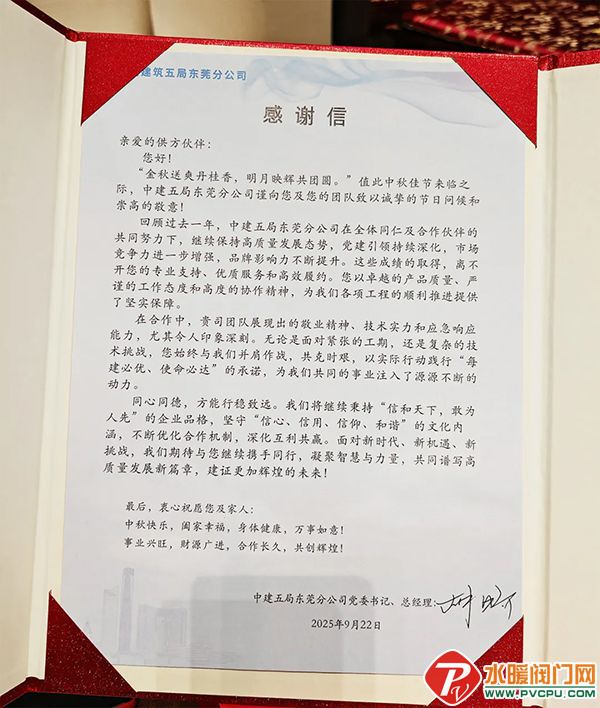 建筑五局东莞分公司
感谢信
亲爱的供方伙伴：
您好！
“金秋送爽丹桂香，明月映辉共团圆。”值此中秋佳节来临之
际，中建五局东莞分公司谨向您及您的团队致以诚挚的节日问候和
崇高的敬意！
回顾过去一年，中建五局东莞分公司在全体同仁及合作伙伴的
共同努力下，继续保持高质量发展态势，党建引领持续深化，市场
竞争力进一步增强，品牌影响力不断提升。这些成绩的取得，离不
开您的专业支持、优质服务和高效履约。您以卓越的产品质量、严
谨的工作态度和高度的协作精神，为我们各项工程的顺利推进提供
了坚实保障。
在合作中，贵司团队展现出的敬业精神、技术实力和应急响应
能力，尤其令人印象深刻。无论是面对紧张的工期，还是复杂的技
术挑战，您始终与我们并肩作战，共克时艰，以实际行动践行“每
建必优、使命必达”的承诺，为我们共同的事业注入了源源不断的
动力。
同心同德，方能行稳致远。我们将继续秉持“信和天下，敢为
人先”的企业品格，坚守“信心、信用、信仰、和谐”的文化内
涵，不断优化合作机制，深化互利共赢。面对新时代、新机遇、新
挑战，我们期待与您继续携手同行，凝聚智慧与力量，共同谱写高
质量发展新篇章，建证更加辉煌的未来！
最后，衷心祝愿您及家人：
中秋快乐，阖家幸福，身体健康，万事如意！
事业兴旺，财源广进，合作长久，共创辉煌！
中建五局东莞分公司党委书记、总经理：
2025年9月22日
水暖阀门网
WWW.PVCPU.COM